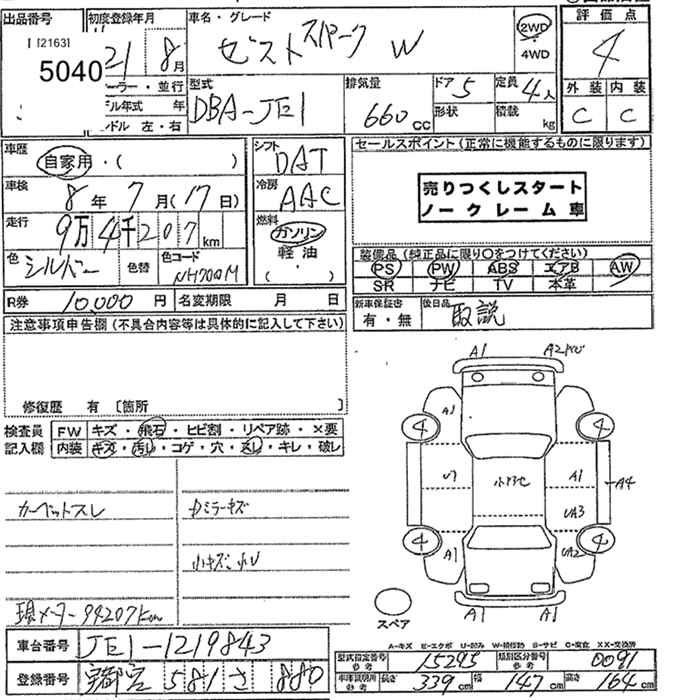 出品番号 初度登録年月 車名・グレード 評価点
[2163]
5040
21 8月 ゼスト スパーク W 2WD 4WD 4
外装 内装
C C
カラー・並行
モデル年式 年
ハンドル 左・右
型式 DBA-JE1 排気量 660cc ドア 5 形状 定員 4人 積載 kg
車歴 自家用・( )
シフト DAT
セールスポイント(正常に機能するものに限ります)
車検 8年 7月(17日)
冷房 AAC
売りつくしスタート
ノークレーム車
走行 9万4千207km
燃料 ガソリン 軽油 ・ ( )
色 シルバー 色替 色コード NH700M
装備品(純正品に限り○をつけてください)
PS PW ABS エアB AW
SR ナビ TV 本革
R券 10,000円 名変期限 月 日
新車保証書 有・無 後日品 取説
注意事項申告欄(不具合内容等は具体的に記入して下さい)
修復歴 有 〔箇所
検査員記入欄
FW キズ・飛石・ヒビ割・リペア跡・×要
内装 キズ・汚レ・コゲ・穴・スレ・キレ・破レ
カーペットスレ
ミラーキズ
小キズ・小U
現メーター 94207km
A1 A2
A1
4 4
A1 A4
UA3
4 4
A1 UA2
A1 A1
スペア
車台番号 JE1-1219843
登録番号 宇都宮 581 さ 880
A-キズ E-エクボ U-凹み W-補修跡 S-サビ C-腐食 XX-交換済
型式指定番号 参考 15295 類別区分番号 参考 0091
車庫証明用 参考 長さ 339cm 幅 147cm 高さ 164cm